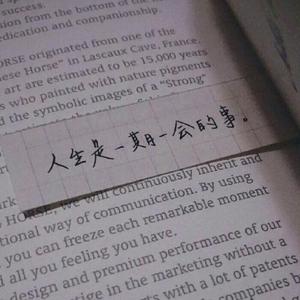 success.
from the bottom of the
edication and companionship.
ORSE originated from one of the
ese Horse" in Lascaux Cave, France.
art are estimated to be 15,000 years
s who painted with nature pigments
d the symbolic images of a "Strong"
人生是一期一会的事。
HORSE, we will continuously inherit and
tional way of communication. By using
you can freeze each remarkable moment
d all you feeling you have.
design and premium performance of our
in the marketing without a
with a lot of patents
companies